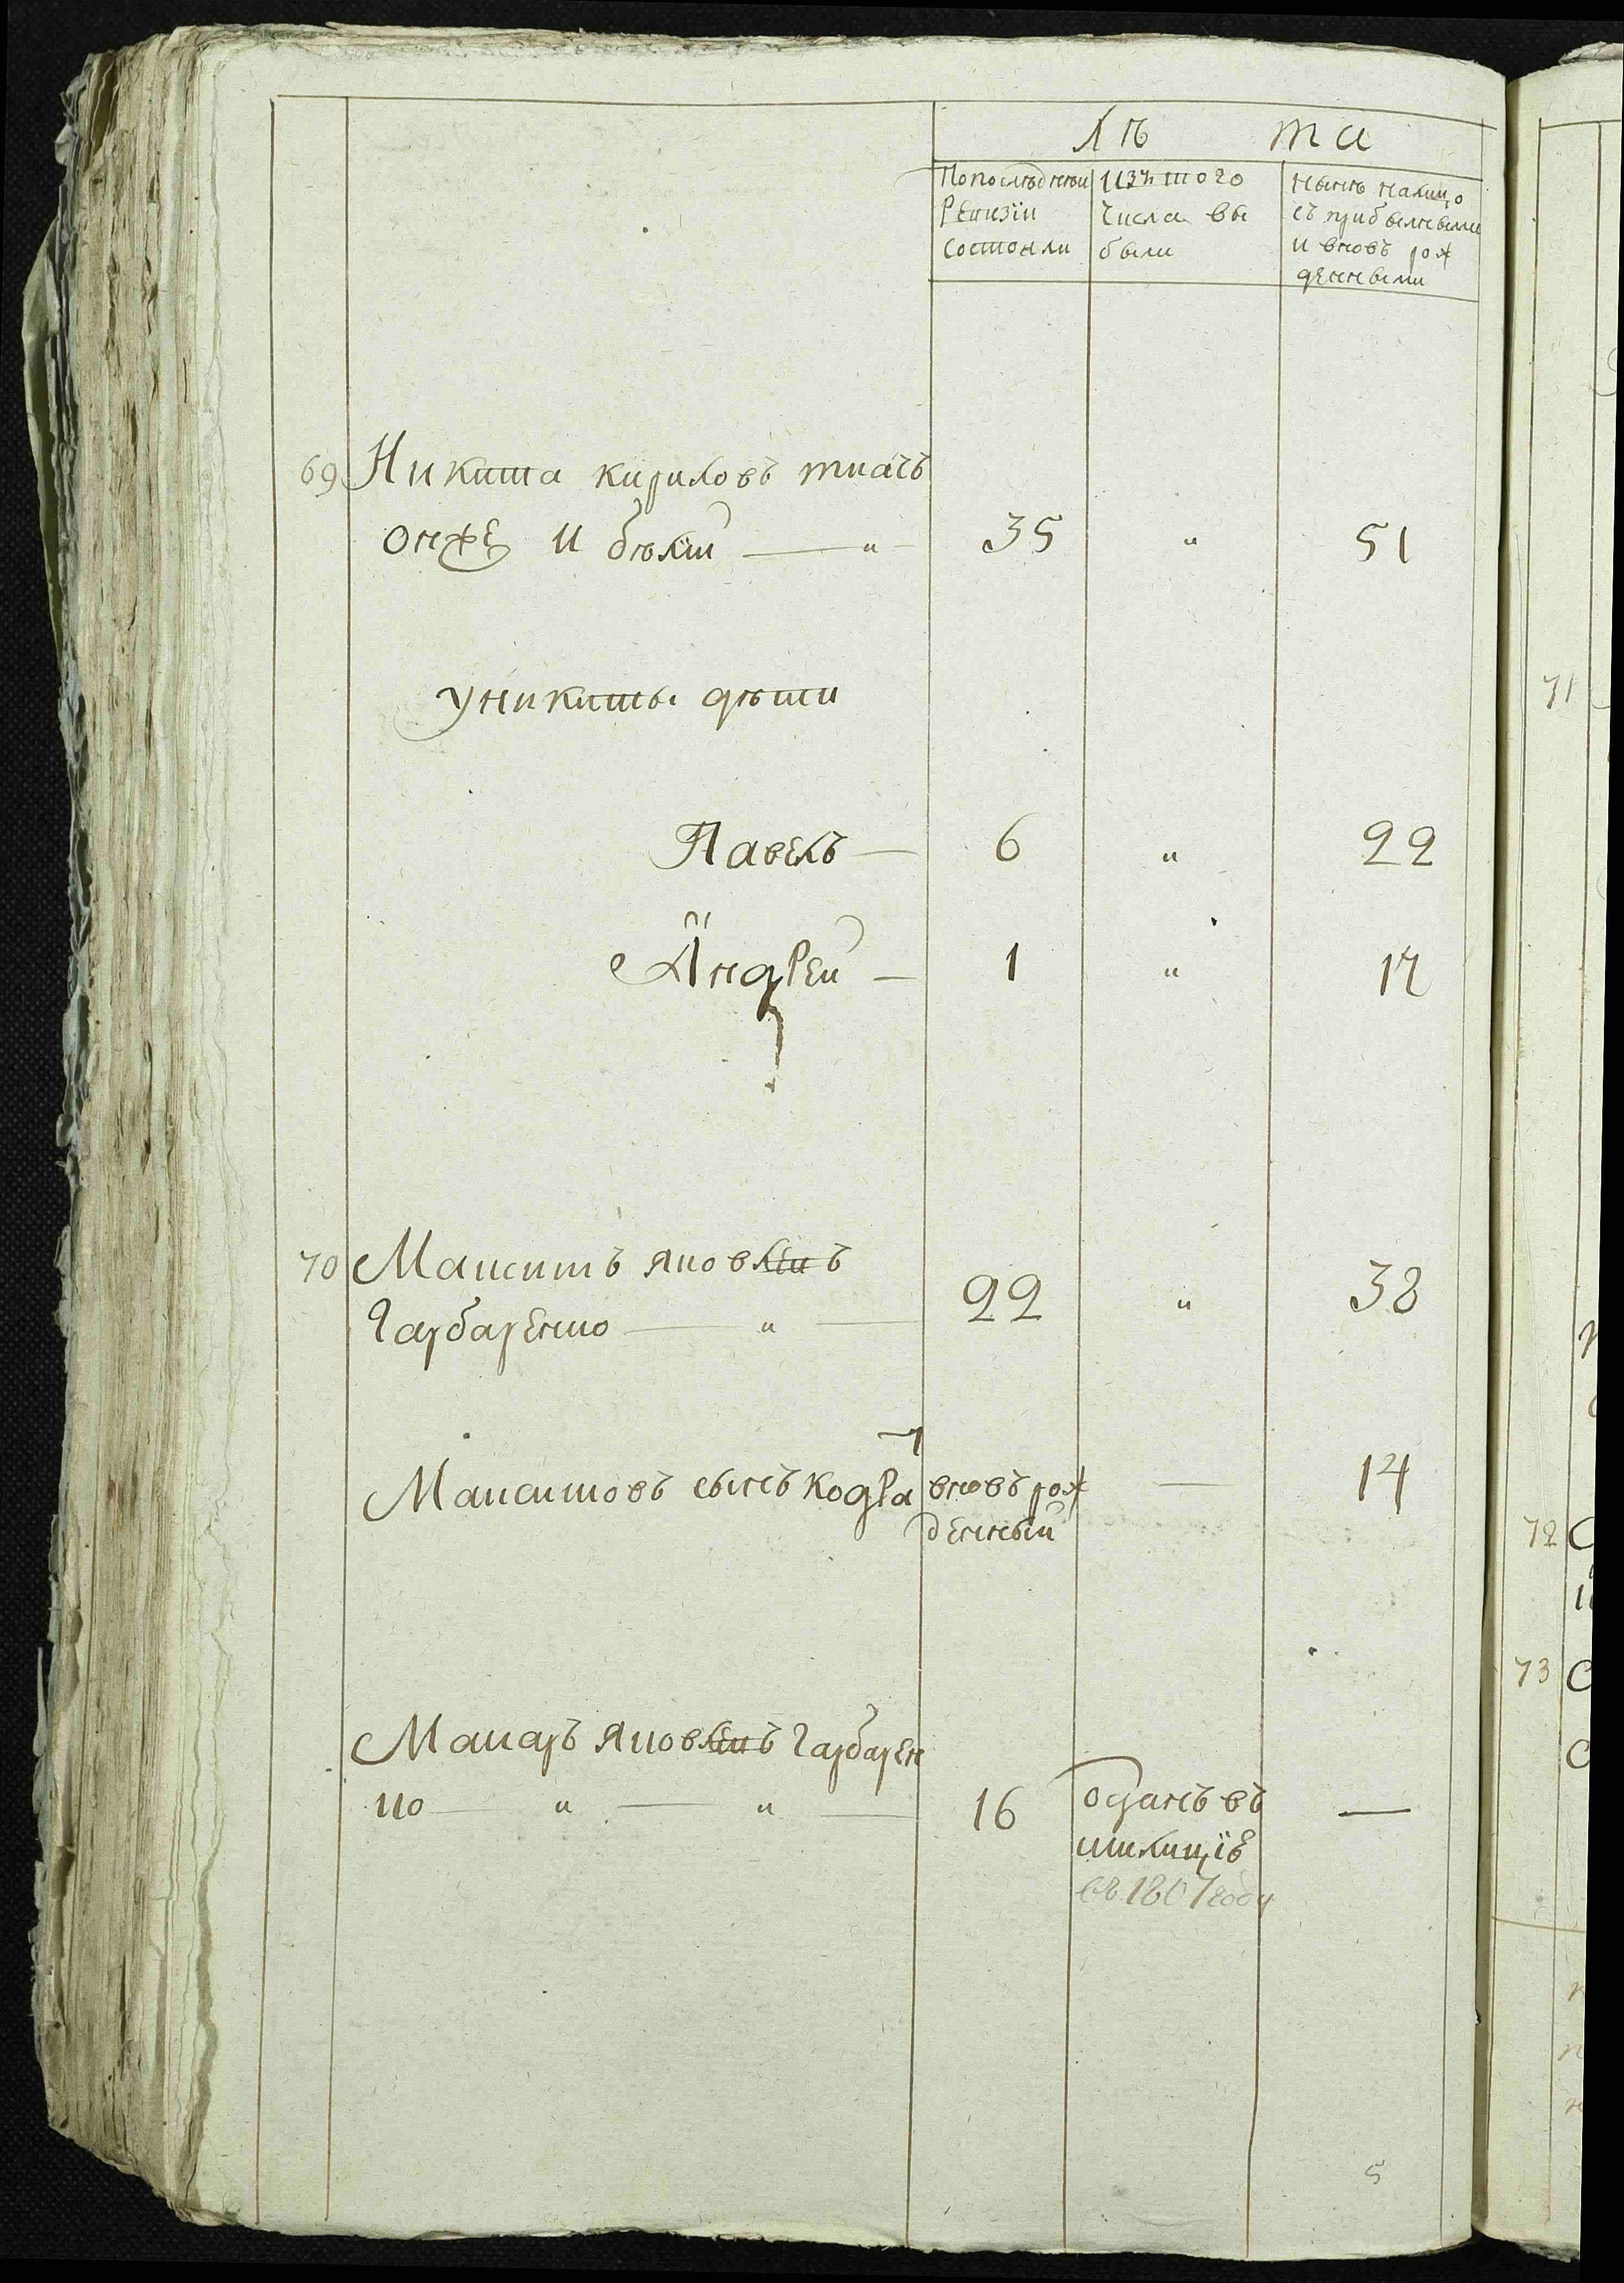 Лѣ та
По послѣднеи
Ревизіи
состояли
изъ того
числа вы
были
нынѣ налицо
съ прибылными
и вновъ рож
денными
69 Никита кириловъ ткачъ
онже и бѣлій — " — 35 " 51
у никиты дѣти
Павелъ — 6 " 22
Андреи — 1 " 17
70 Максимъ яковлевъ
Гарбаренко — " — 22 " 38
71
Максимовъ сынъ кодра т вновъ рож — 14
денный
72
73
Макаръ яковлевъ гарбарен
ко — " — " — 16 оданъ въ —
милицiе
въ 1807 году
5